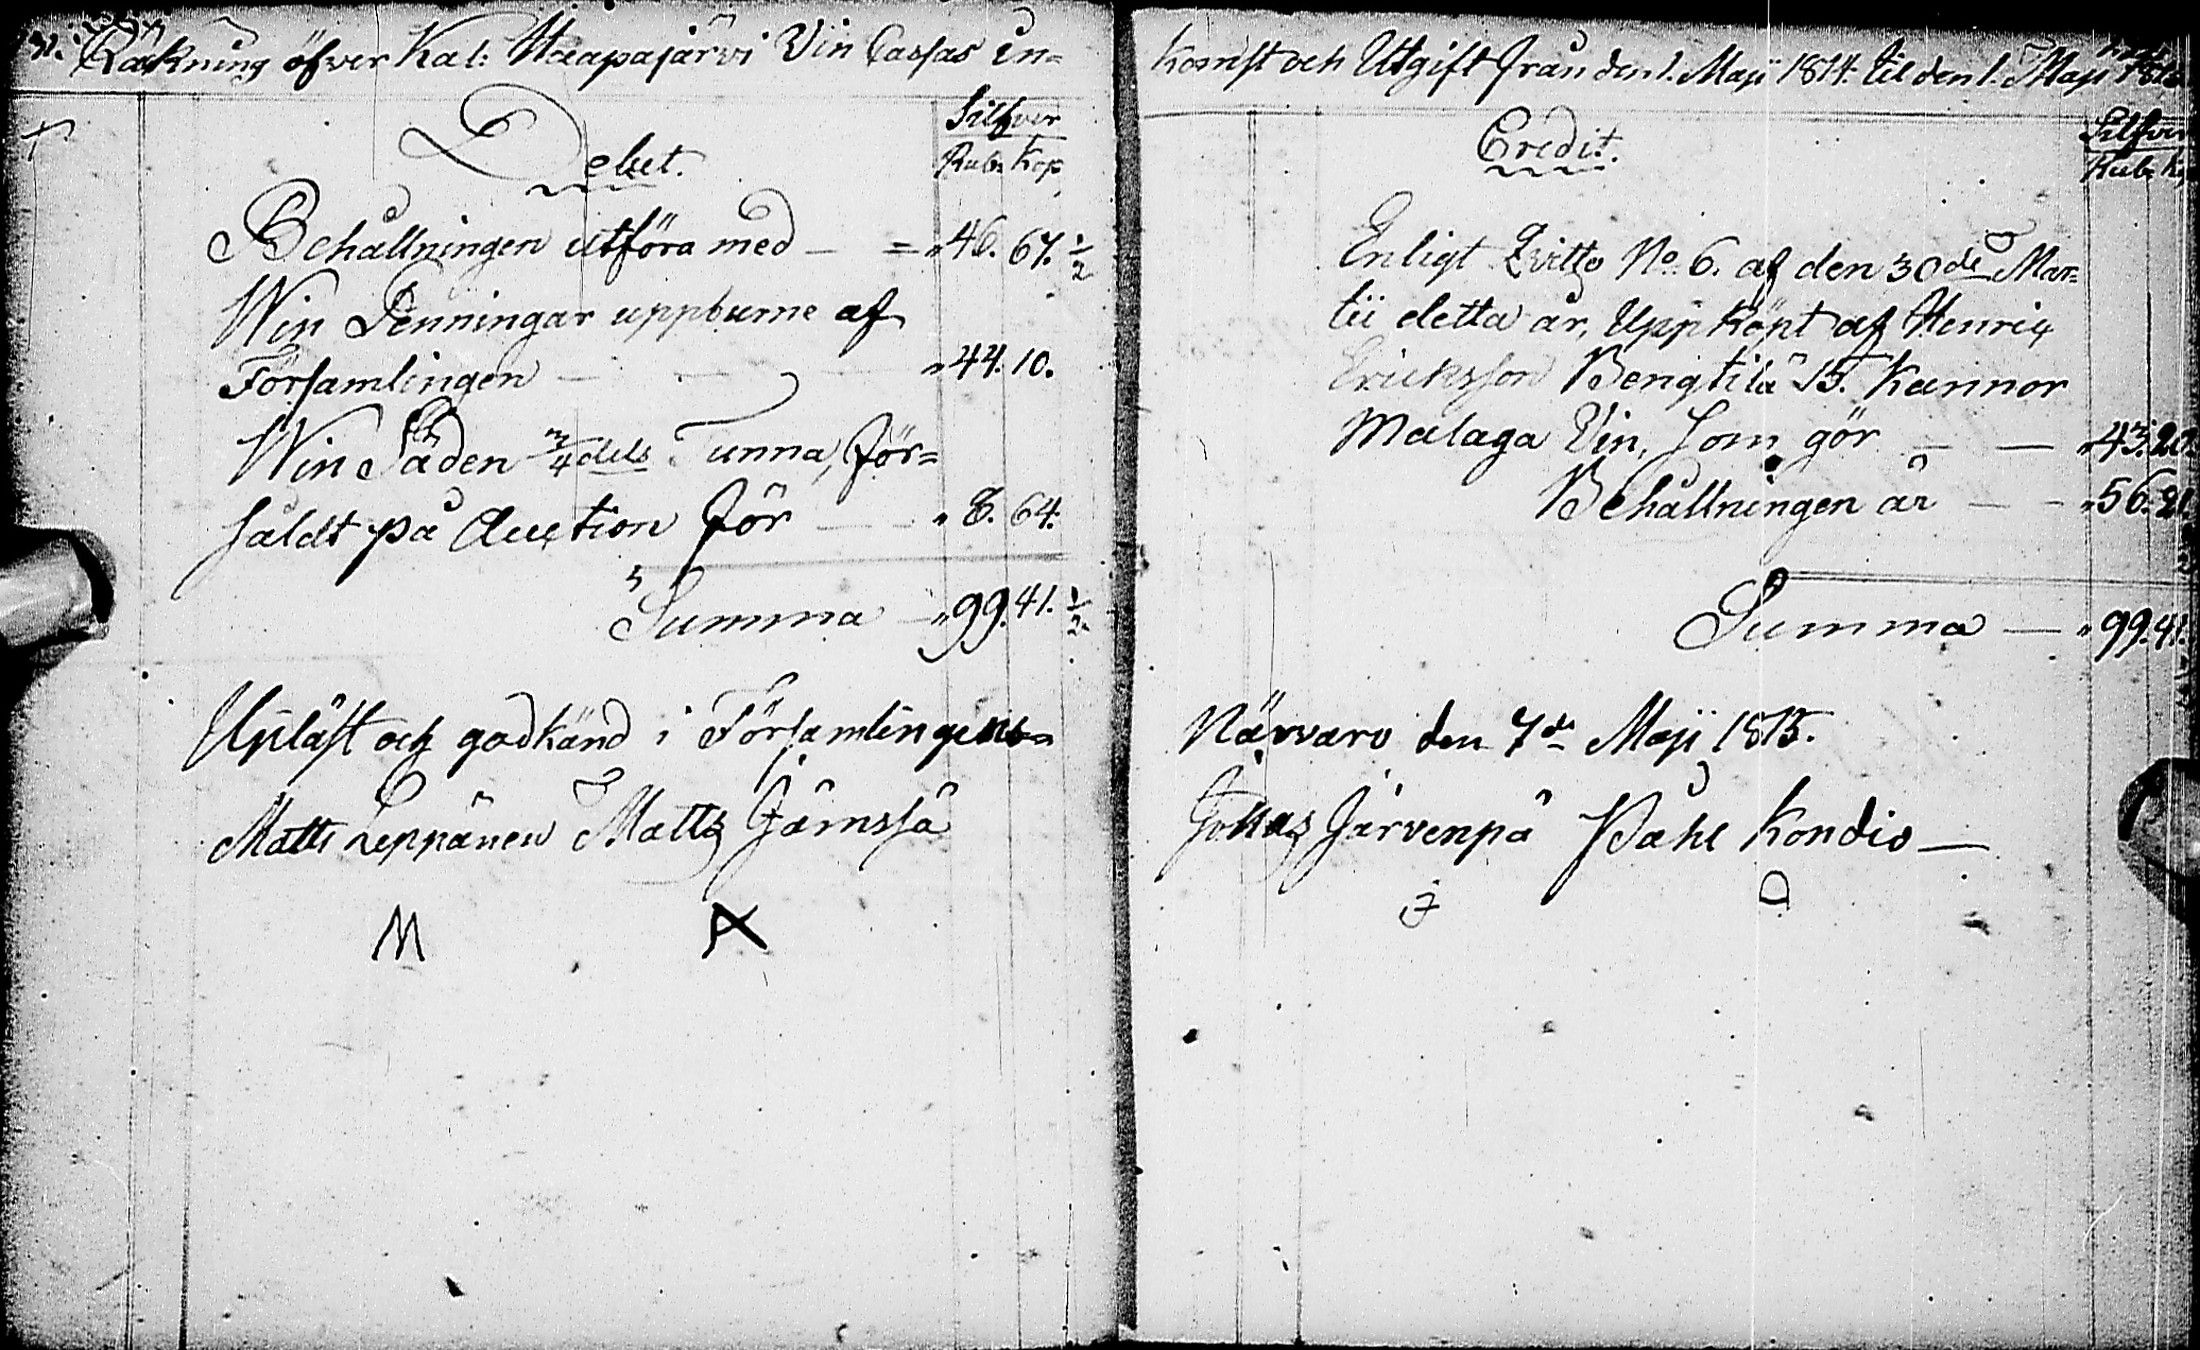 31. Räkning öfver Kal: Haapajärvi Vin Cassas in-
Debet.
Silfver
Rub. Kop
Behållningen utföra med — = „ 46. 67. 1/2
Win Penningar uppburne af
Församlingen — — — „ 44. 10.
Win Säden 3/4 dels Tunna, för=
såldt på Auction för — „ 8. 64.
Summa — „ 99. 41. 1/2
Upläst och godkänd i Församlingens
Matts Leppänen Matts Jämssä
M
komst och Utgift från den 1. Maji 1814. til den 1. Maji 1815
Credit.
Silfver
Rub. Kop
Enligt Qvitto No 6. af den 30de Mar-
tii detta år, Uppköpt af Henric
Ericksson Bengtilä 15. Kannor
Malaga Vin, som gör — — „ 43. 20.
Behållningen är — — „ 56. 21. 1/2
Summa — „ 99. 41. 1/2
Närvaro den 7de Maji 1815.
Johas Järvenpä Påhl Kondio —